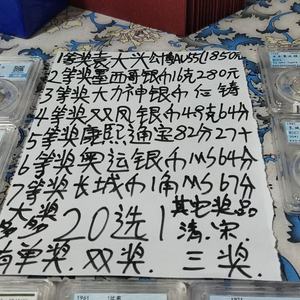 1等奖袁大头公博AU55(1850元
2等奖墨西哥银币16克280元
3等奖大力神银币仁铸
4等奖双凤银币49克64分
5等奖康熙通宝82分27+
6等奖奥运银币MS64分
7等奖长城币1角MS67分
大奖 20选1 其它奖品
清.宋
有单奖.双奖.三奖.